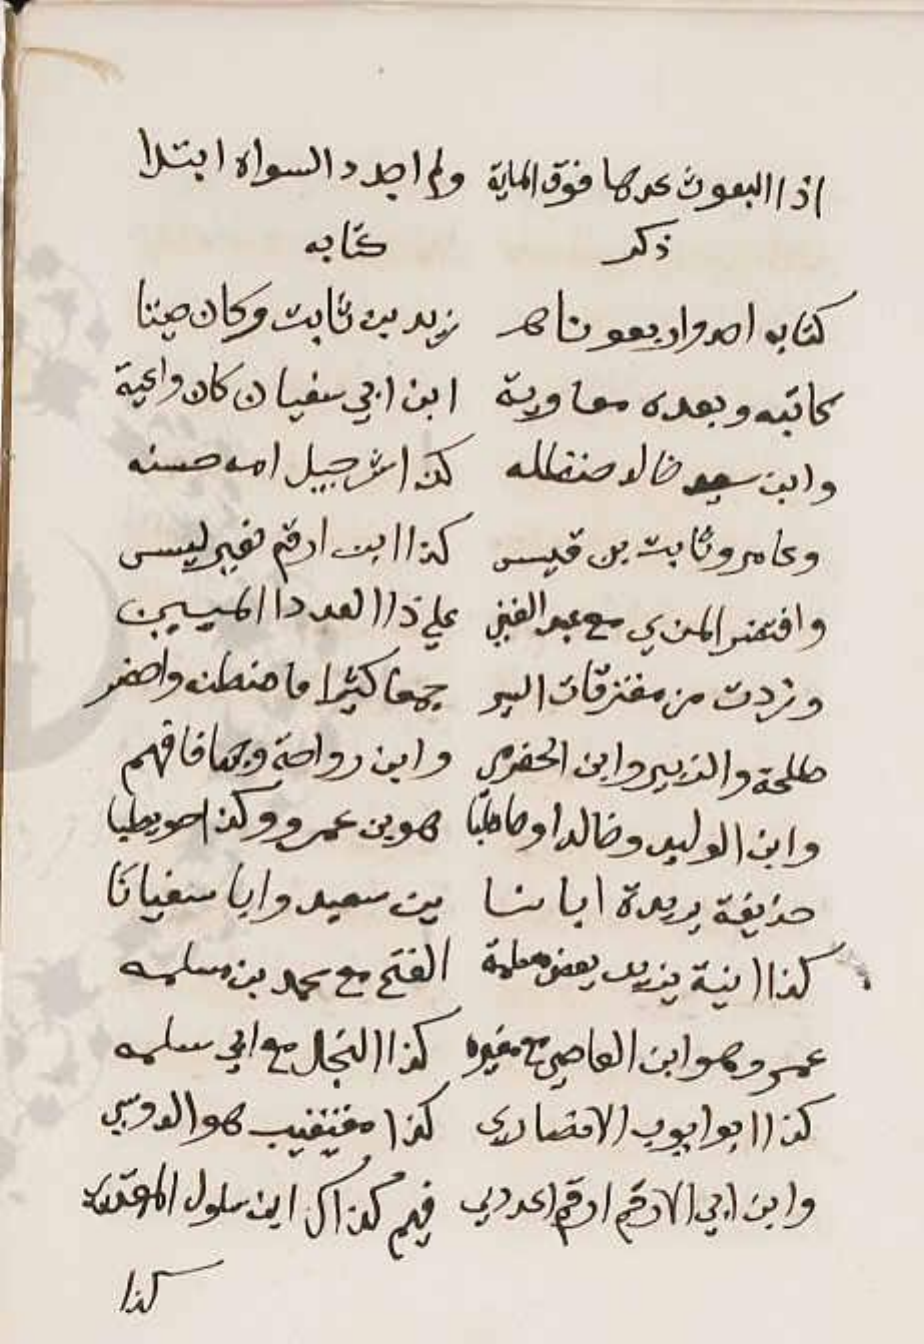 اذا البعوث عدها فوق الماية ولم اجد د السواه ابتدا
ذكر كتابه
كتابه احد واربعونا هم زيد بن ثابت وكان حينا
كاتبه وبعده معاوية ابن ابي سفيان كان واعية
وابن سعيد خالد حنظله كذا شرحبيل امه حسنه
وعامر وثابت بن قيس كذا ابن ارقم بغير ليس
واقتصر المزي مع عبد الغني علي ذا العدد المبين
وزدت من مفترقات السير جمعا كثيرا فاضبطن واحصر
طلحة والزبير وابن الحضرمي وابن رواحة وجهما فافهم
وابن الوليد وخالدا وحاطبا هو بن عمرو وكذا حويطبا
حذيفة بريدة ابانا بن سعيد وابا سفيانا
كذا ابنه يزيد بعض مسلمة الفتح مع محمد بن مسلمه
عمرو هو ابن العاصي مع مغيره كذا النجل مع ابي سلمه
كذا ابو ايوب الانصاري كذا معيقيب هو الدوسي
وابن ابي الارقم ارقم اعدد فيهم كذاك ابن سلول
كذا